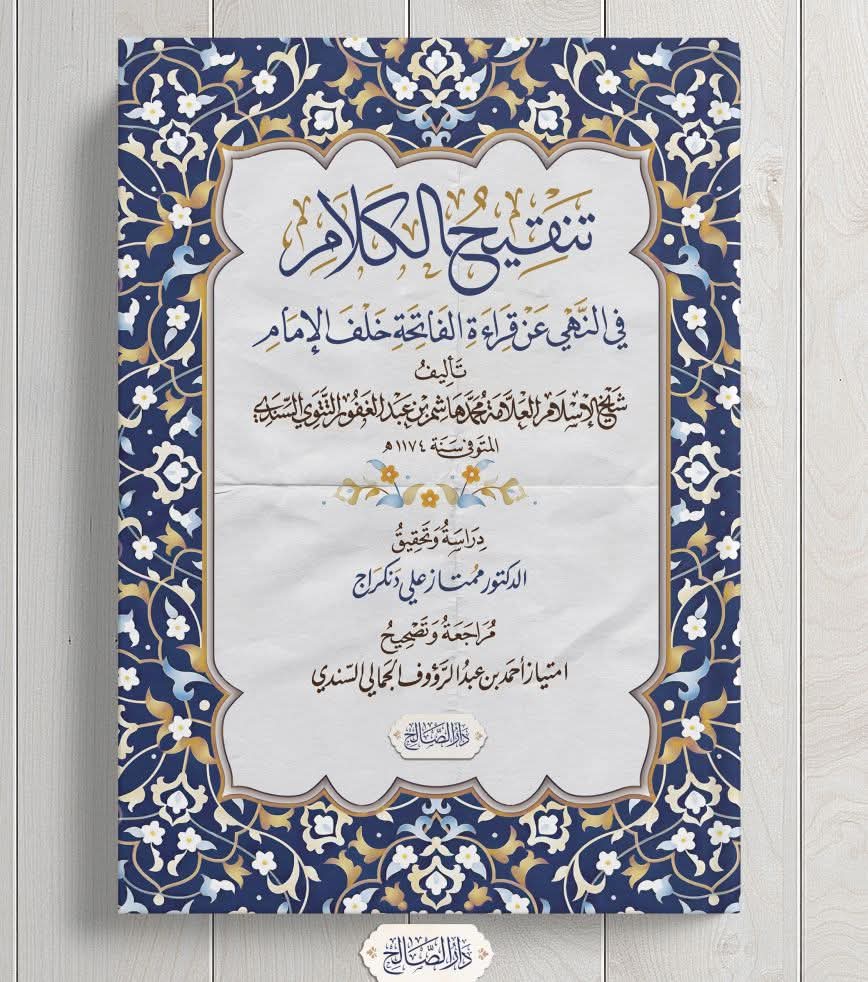 تَنقِيحُ الكَلَامِ
في النَّهْيِ عَنْ قِرَاءَةِ الفَاتِحَةِ خَلْفَ الإِمَامِ
تَأْلِيفُ
شَيْخِ الإِسْلَامِ العَلَّامَة مُحَمَّد هَاشِم بْن عَبْدِ الغَفُورِ التَّتَوِي السِّنْدِي
المتوفى سَنَة ١١٧٤ هـ
دِرَاسَةُ وَتَحْقِيقُ
الدكتور ممتاز علي دنكراج
مُرَاجَعَةُ وَتَصْحِيحُ
امتياز أحمد بن عبدُ الرَّؤُوف الجمالي السِّندي
دَارُ الصَّالِح
دَارُ الصَّالِح